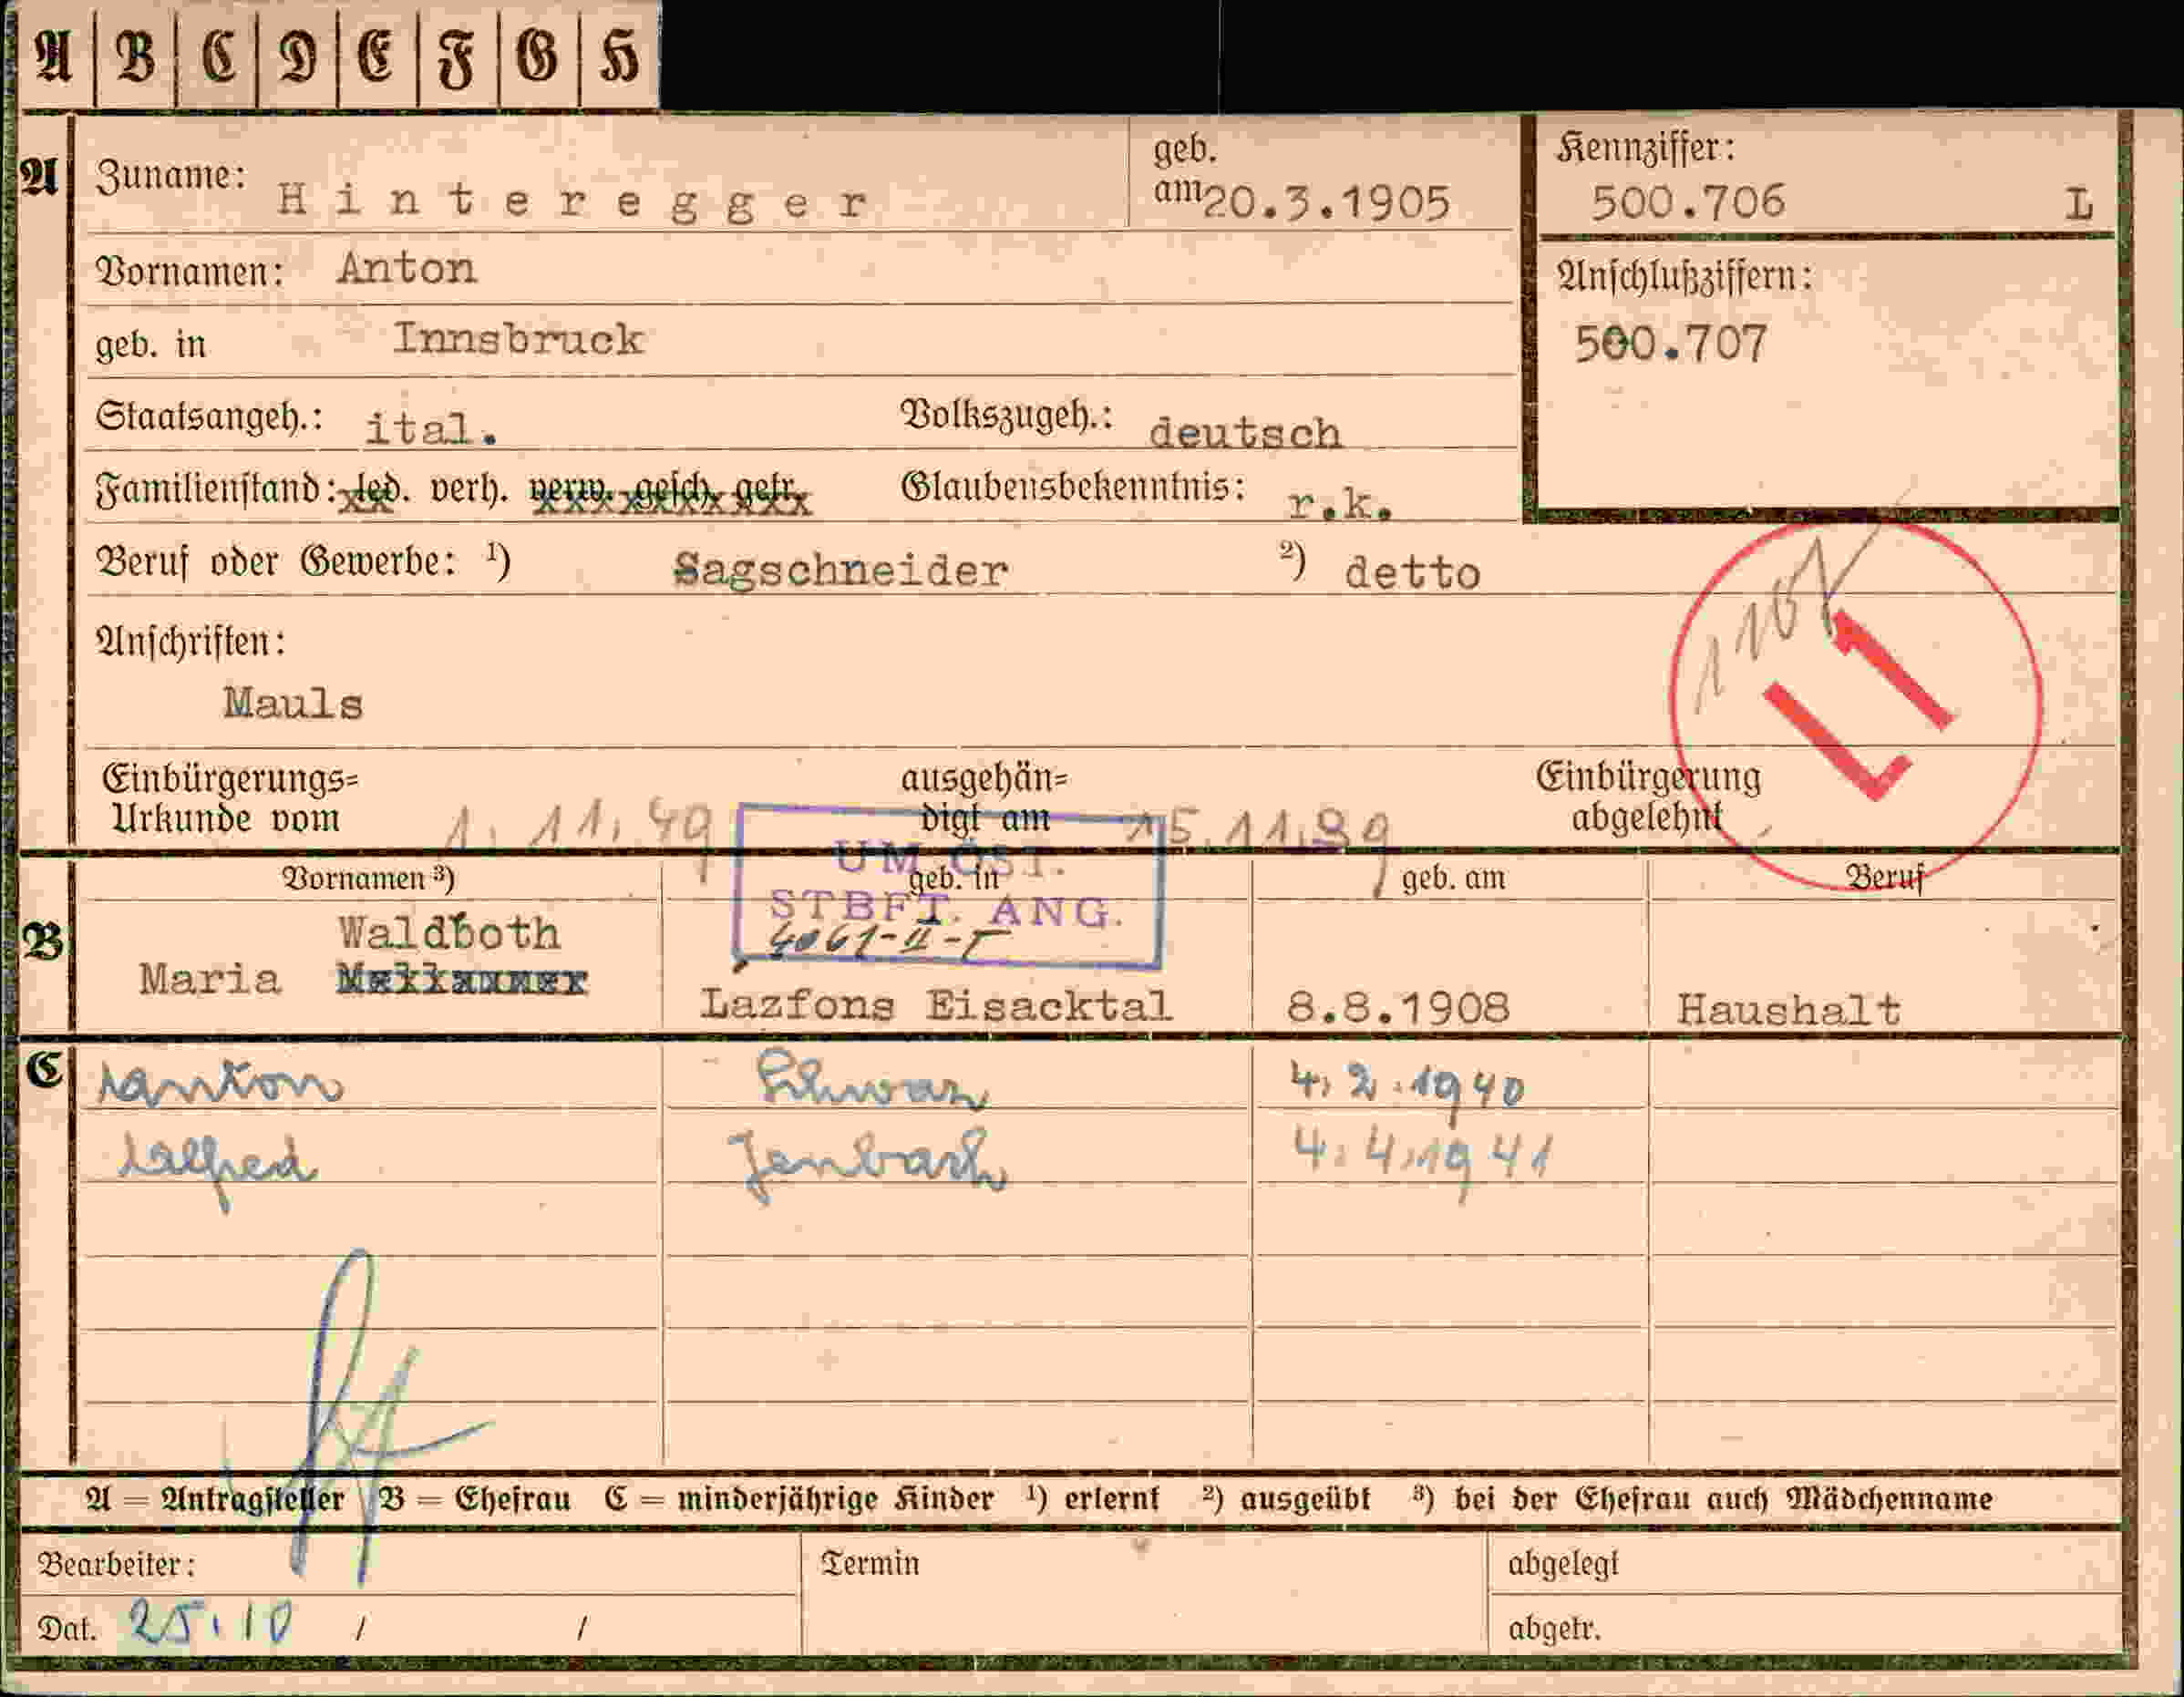 A B C D E F G H
A
Zuname: Hinteregger
geb. am 20.3.1905
Kennziffer:
500.706 L
Vornamen: Anton
Anschlußziffern:
500.707
geb. in Innsbruck
Staatsangeh.: ital. Volkszugeh.: deutsch
Familienstand: led. verh. verw. gesch. getr. Glaubensbekenntnis: r.k.
Beruf oder Gewerbe: ¹) Sagschneider ²) detto
Anschriften:
Mauls
Einbürgerungs= ausgehän= Einbürgerung
Urkunde vom 1. 11. 49 digt am 15.11.39 abgelehnt
UM ÖST.
STBFT. ANG.
Vornamen ³) geb. in geb. am Beruf
B
Waldboth
Maria Lazfons Eisacktal 8.8.1908 Haushalt
C
Anton Schwaz 4.2.1940
Alfred Jenbach 4.4.1941
A = Antragsteller B = Ehefrau C = minderjährige Kinder ¹) erlernt ²) ausgeübt ³) bei der Ehefrau auch Mädchenname
Bearbeiter: Termin abgelegt
Dat. 25.10 / / abgetr.